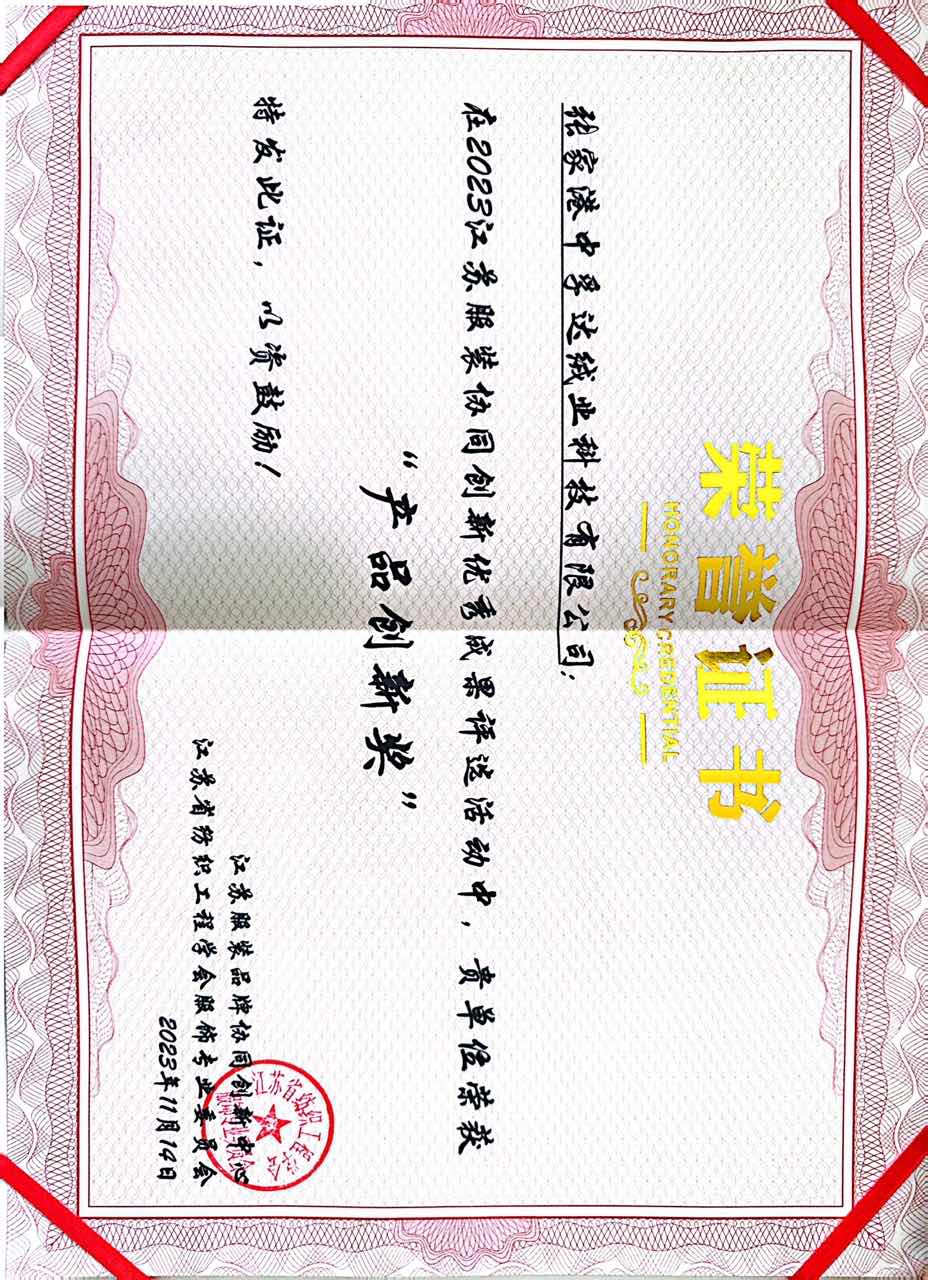 荣誉证书
HONORARY CREDENTIAL
张家港中孚达绒业科技有限公司:
在2023江苏服装协同创新优秀成果评选活动中，贵单位荣获
“产品创新奖”
特发此证，以资鼓励！
江苏服装品牌协同创新中心
江苏省纺织工程学会服饰专业委员会
2023年11月14日
江苏省纺织工程学会
服饰专业委员会